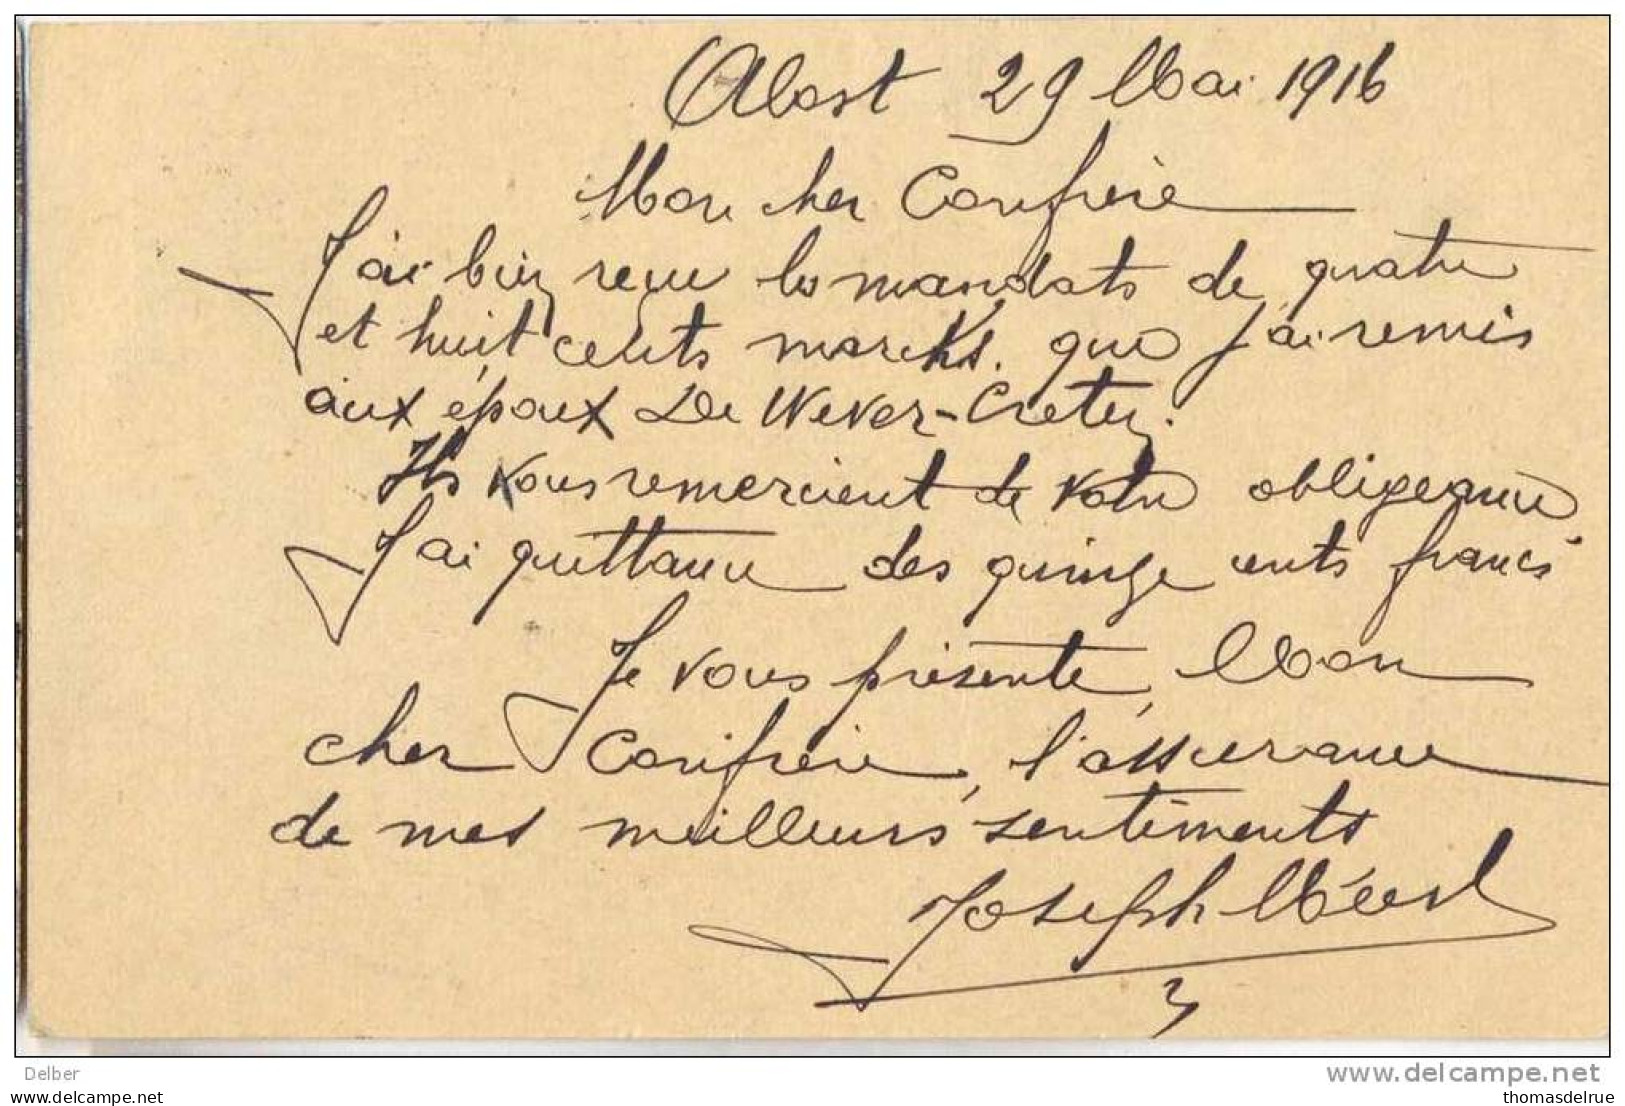 Alost 29 Mai 1916
Mon cher Confrère
J'ai bien reçu les mandats de quatre
et huit cents marks. que j'ai remis
aux époux De Wever-Cretey.
Ils vous remercient de votre obligeance
J'ai quittance des quinze cents francs
Je vous présente, Mon
cher Confrère, l'assurance
de mes meilleurs sentiments
Joseph
Delber
www.delcampe.net
thomasdelrue